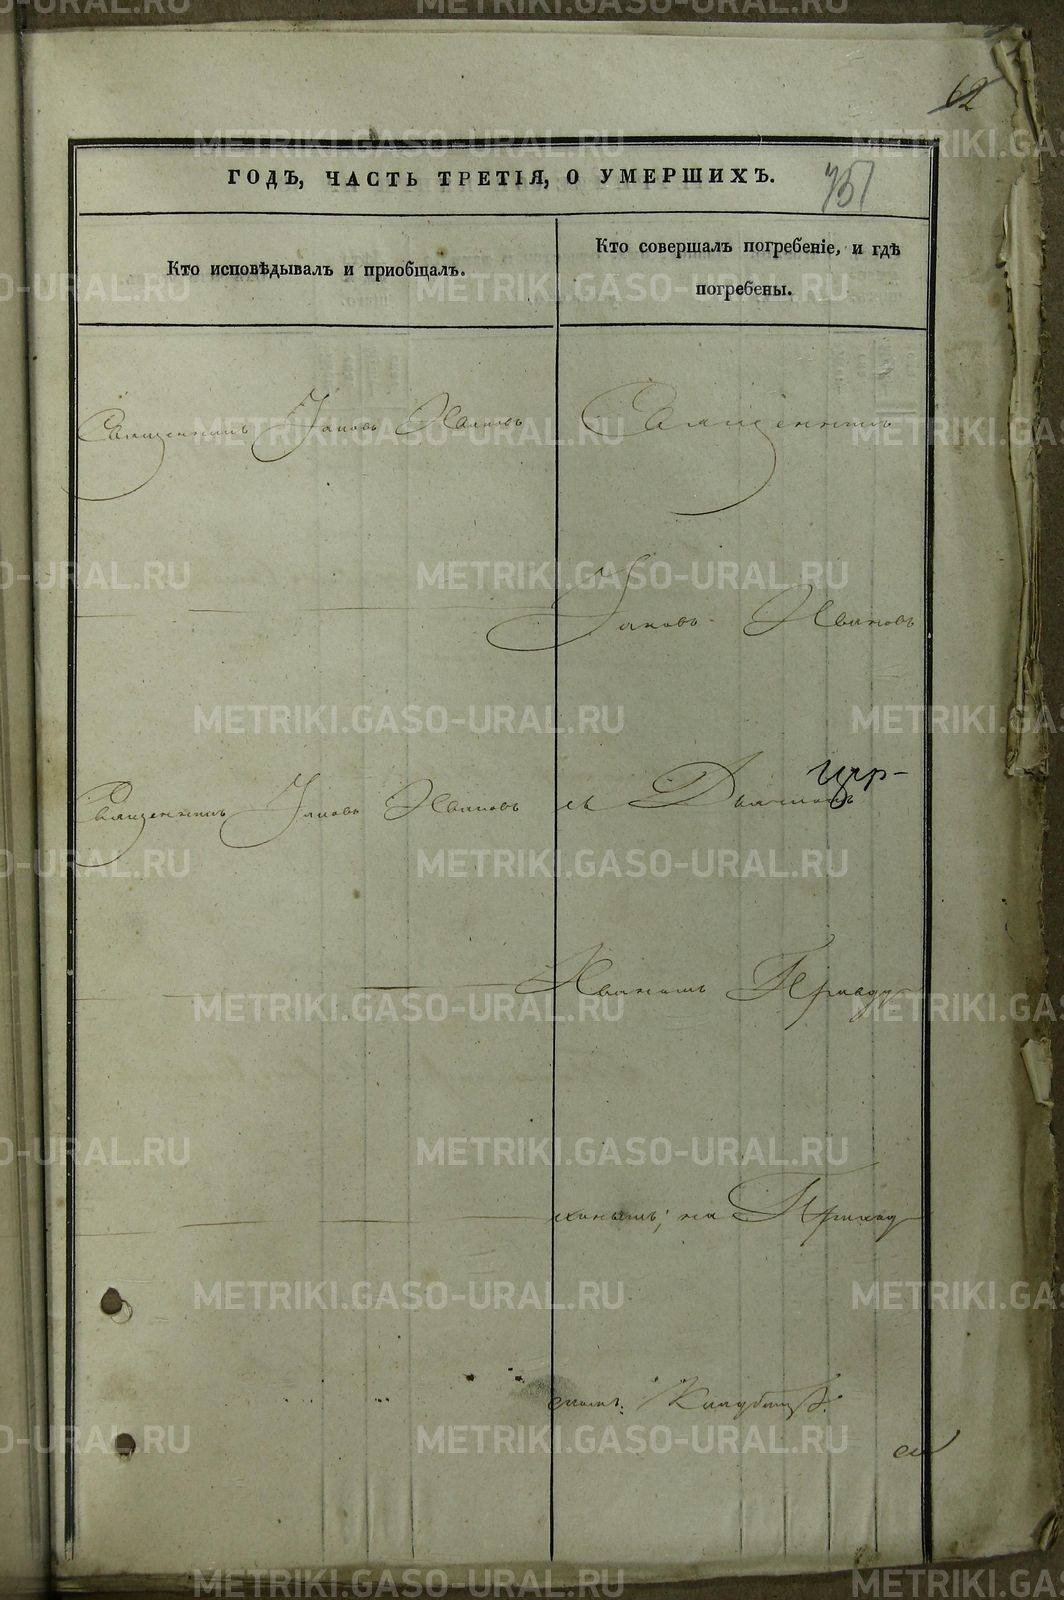 62
751
ГОДЪ, ЧАСТЬ ТРЕТІЯ, О УМЕРШИХЪ.
Кто исповѣдывалъ и пріобщалъ.
Кто совершалъ погребеніе, и гдѣ
погребены.
Священникъ Іаковъ Ивановъ
Священникъ
Іаковъ Ивановъ
Священникъ Іаковъ Ивановъ
съ Дьячкомъ
Иваномъ
на Приход
скомъ Кладбищѣ.
METRIKI.GASO-URAL.RU